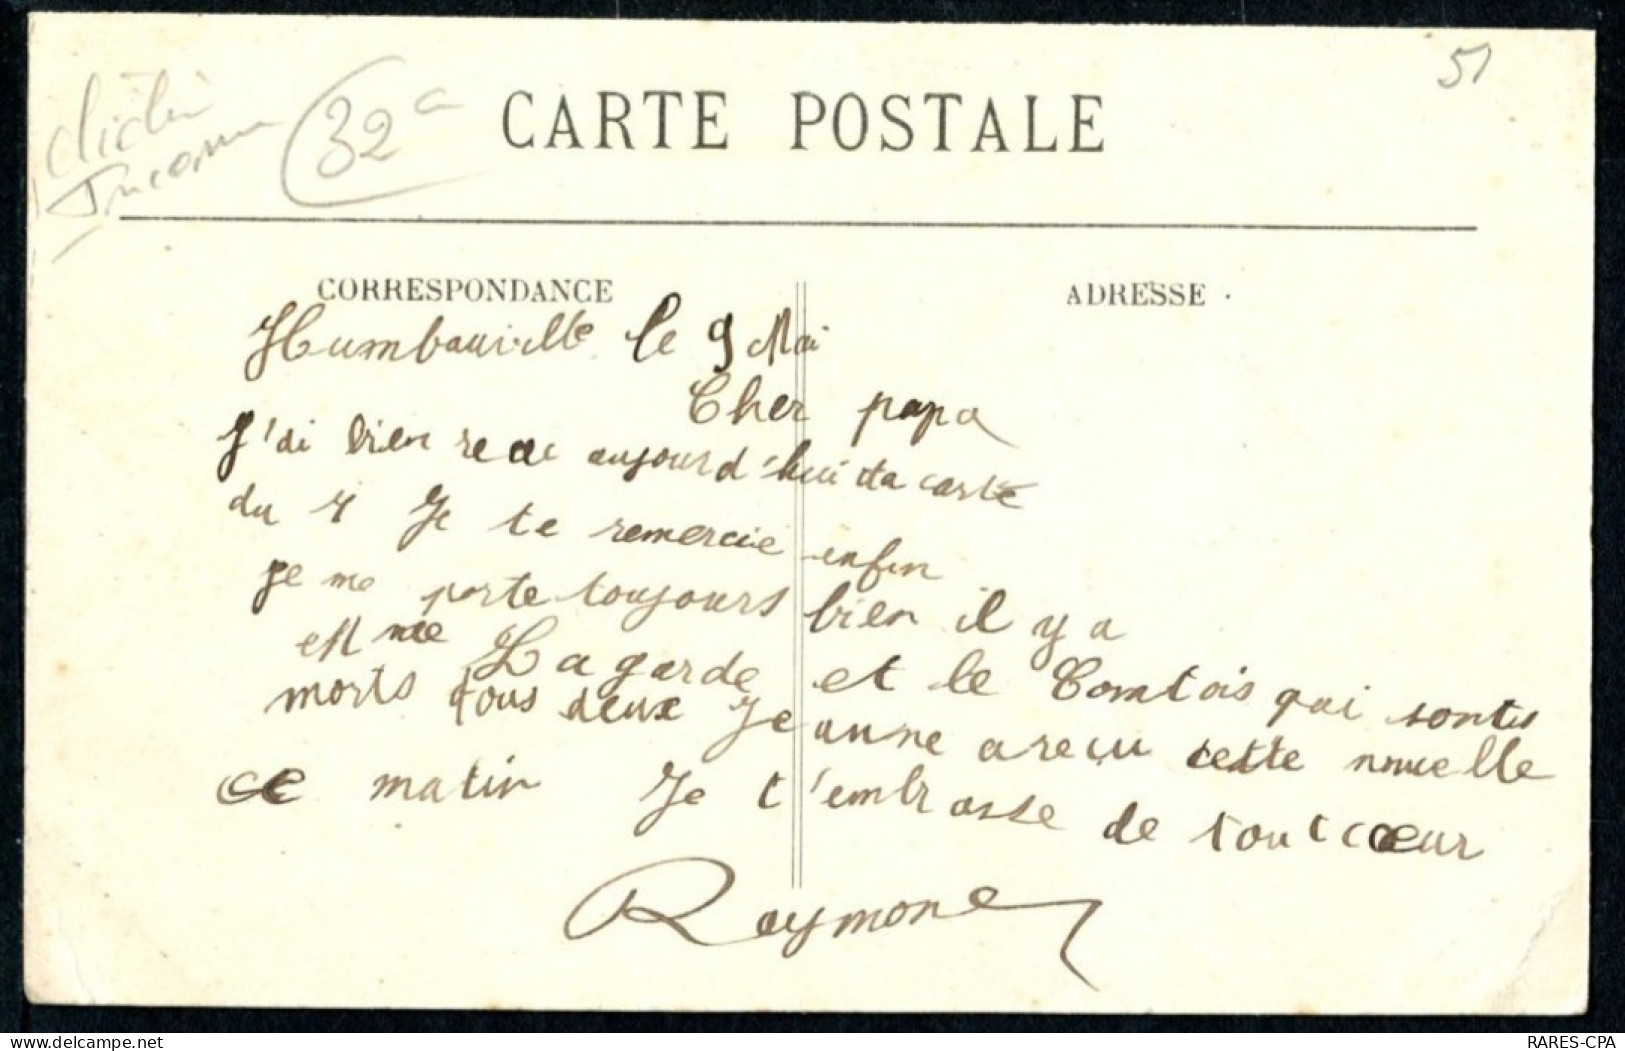 51
32
CARTE POSTALE
CORRESPONDANCE
ADRESSE
Humbauville le 9 Mai
Cher papa
J'ai bien recu aujourd'hui ta carte
du 4 Je te remercie enfin
je me porte toujours bien il y a
Lagarde et le Comtois qui sont
morts tous deux Jeanne a reçu cette nouvelle
ce matin Je t'embrasse de tout coeur
Raymond
delcampe.net
RARES-CPA